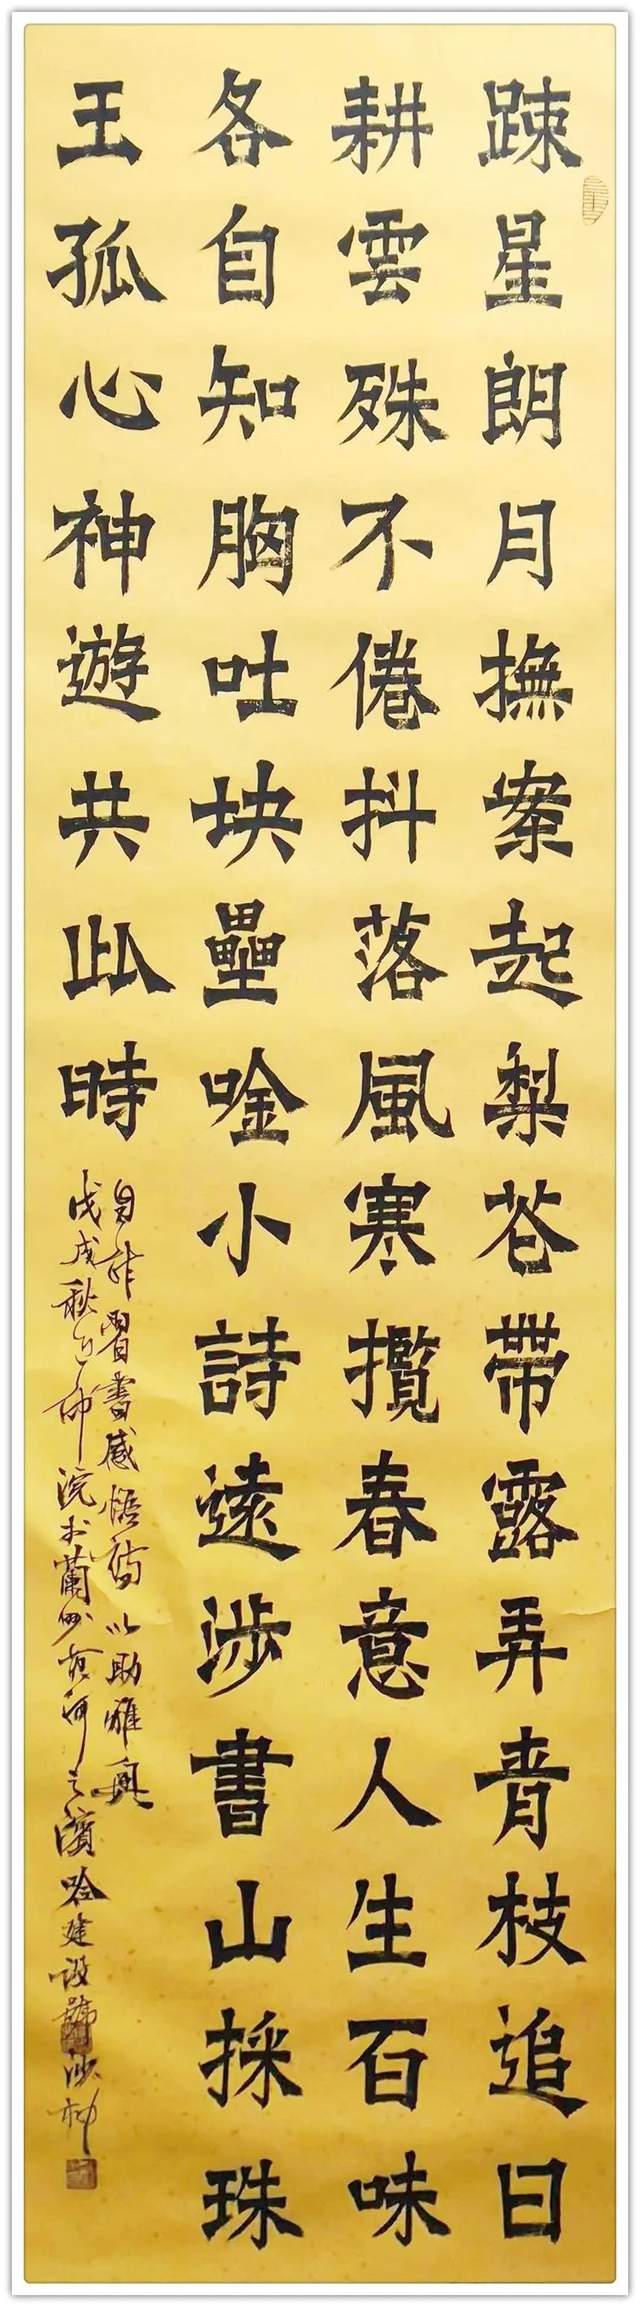 踈星朗月撫案起梨花帶露弄青枝追日
耕雲殊不倦抖落風寒攬春意人生百味
各自知胸吐块壘唫小詩遠涉書山採珠
王孤心神遊共此時
自作習書感悟詩以助雅興
戊戌秋月師院於蘭州黄河之濱哈建設號沙柳